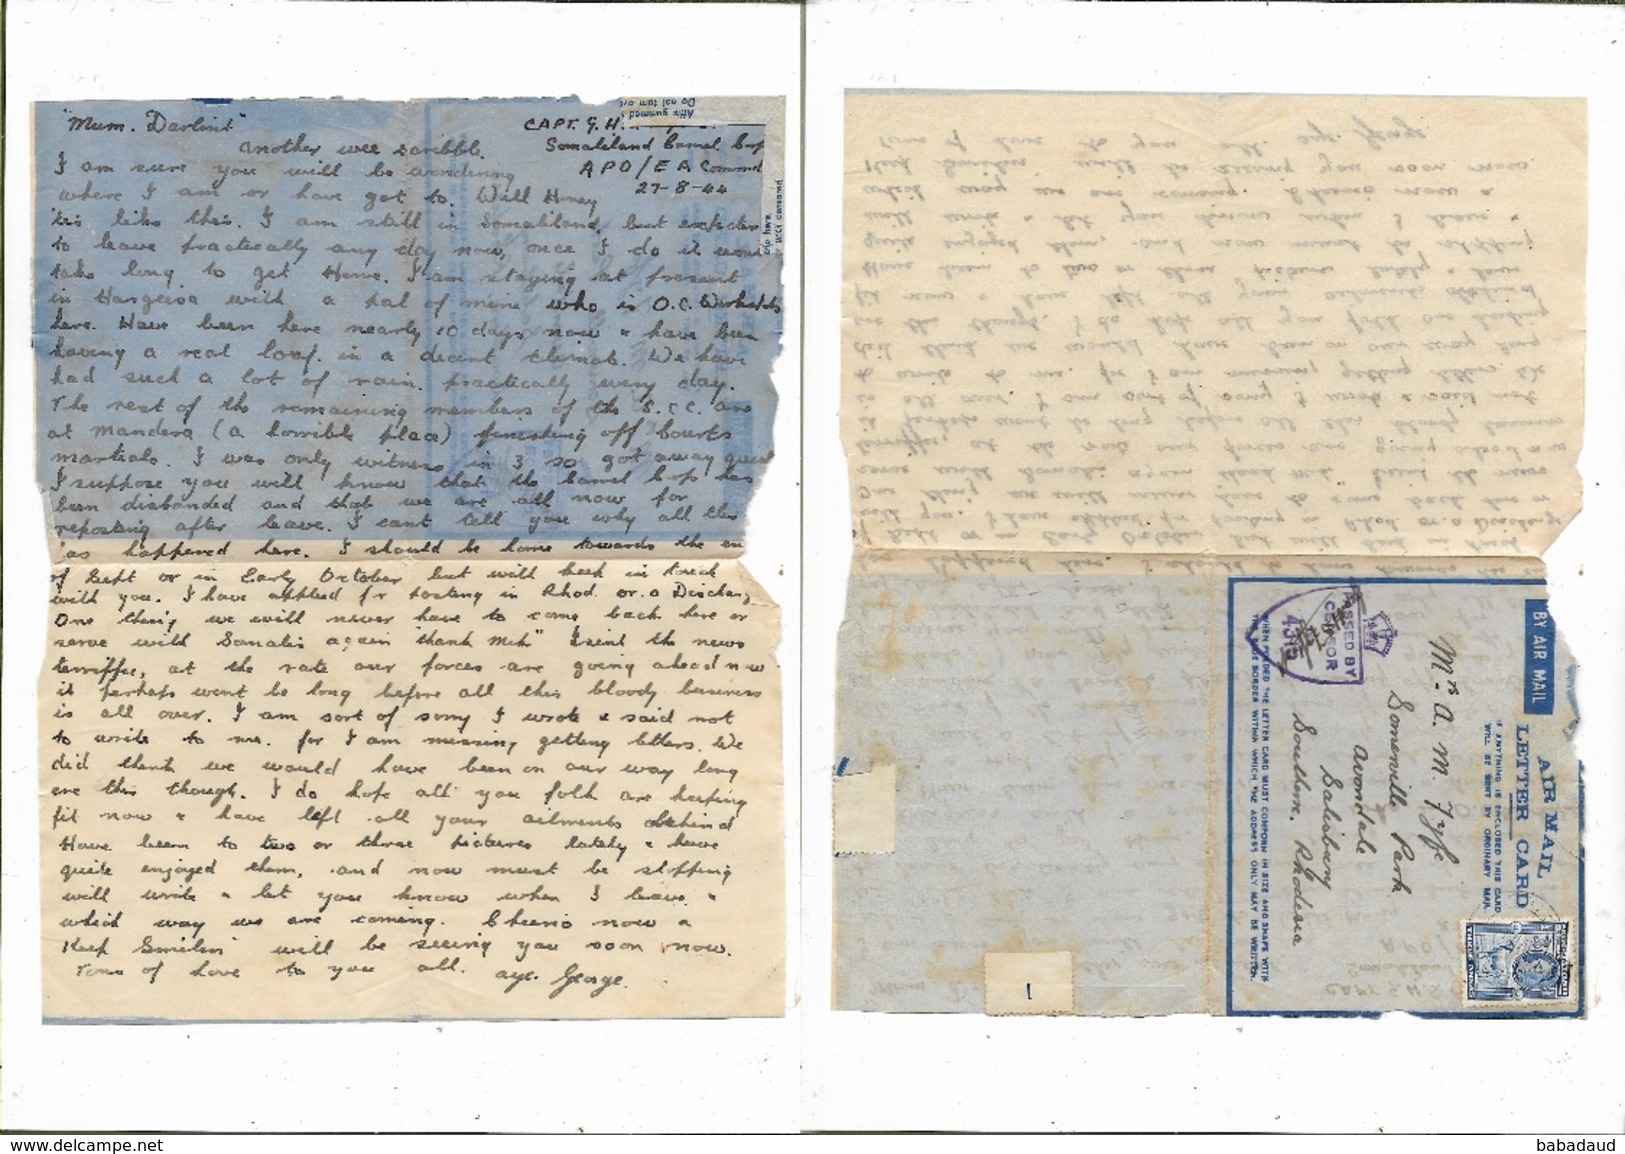 "Mum. Darlint"
CAPT. G. H.
Another wee scribble.
Somaliland Camel Corps
A P O / E A Command
27-8-44
I am sure you will be wondering
where I am or have got to. Well Honey
tis like this. I am still in Somaliland, but expecten
to leave practically any day now, once I do it wont
take long to get Home. I am staying at present
in Hargeisa with a pal of mine who is O.C. Workshops
here. Have been here nearly 10 days now & have been
having a real loaf. in a decent climate. We have
had such a lot of rain. practically every day.
The rest of the remaining members of the S.C.C. are
at Mandera (a horrible place) finishing off Courts
martials. I was only witness in 3 so got away quick
I suppose you will know that the Camel Corps has
been disbanded and that we are all now for
reposting after leave. I cant tell you why all this
has happened here. I should be home towards the en
of Sept or in Early October but will keep in touch
with you. I have applied for posting in Rhod. or a Discharg
One thing we will never have to come back here or
serve with Somalis again thank
the news
terriffic, at the rate our forces are going ahead now
it perhaps wont be long before all this bloody business
is all over. I am sort of sorry I wrote & said not
to write to me. for I am missing getting letters. We
did think we would have been on our way long
ere this though. I do hope all you folk are keeping
fit now & have left all your ailments behind
Have been to two or three pictures lately & have
quite enjoyed them, and now must be stopping
will write & let you know when I leave &
which way we are coming. Cheerio now &
Keep Smilin' will be seeing you soon now.
Tons of love to you all. aye. George.
Affix gummed
Do not turn ov
BY AIR MAIL
AIR MAIL
LETTER CARD
IF ANYTHING IS ENCLOSED THIS CARD
WILL BE SENT BY ORDINARY MAIL
Mrs. A. M. Fyfe
Somerville Park
Avondale
Salisbury
Southern. Rhodesia
PASSED BY
CENSOR
WHEN FOLDED THE LETTER CARD MUST CONFORM IN SIZE AND SHAPE WITH
THE BLUE BORDER WITHIN WHICH THE ADDRESS ONLY MAY BE WRITTEN.
1
www.delcampe.net
babadaud